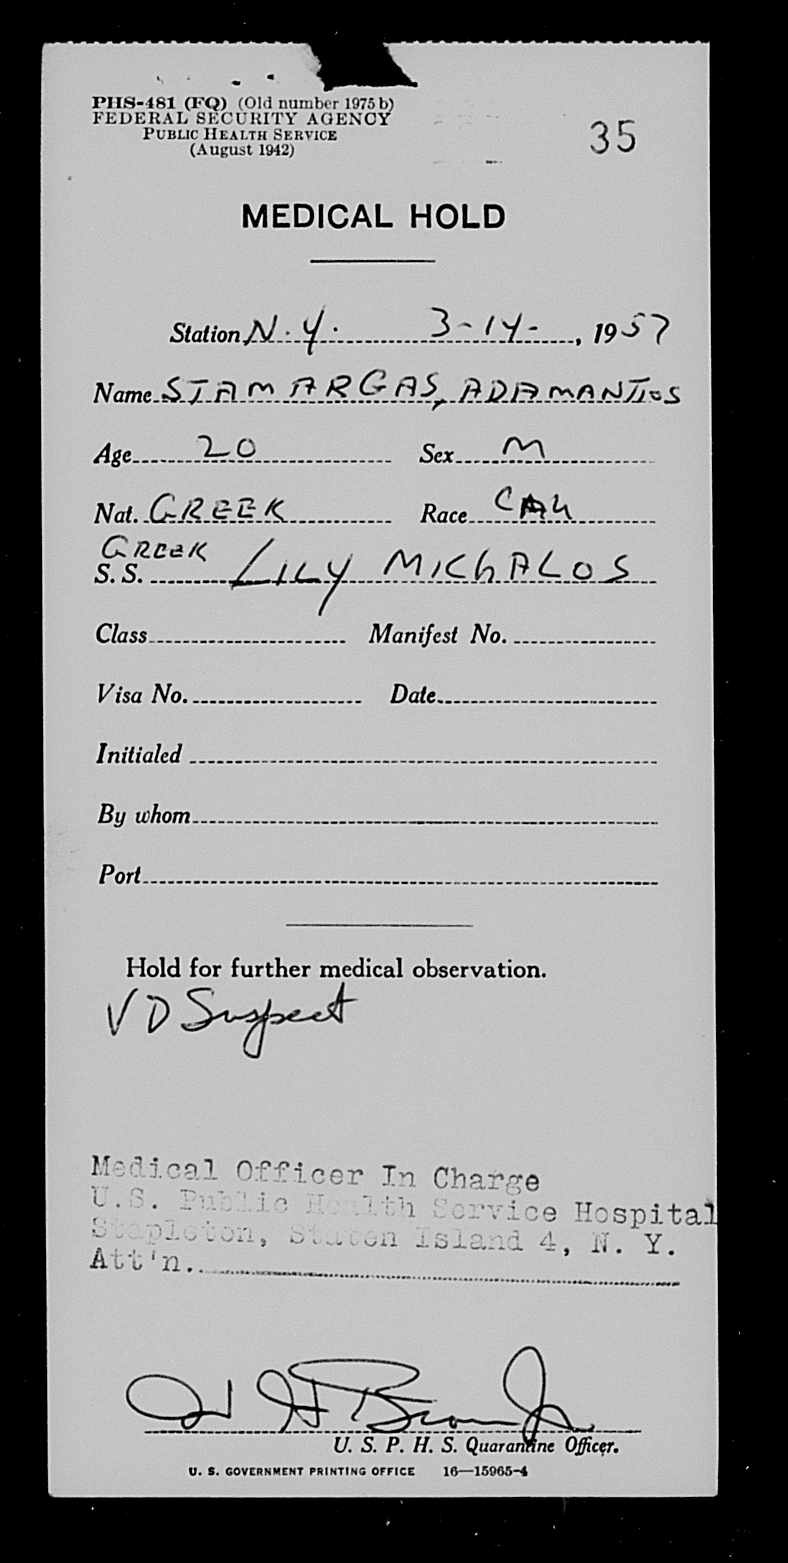 PHS-481 (FQ) (Old number 1975 b)
FEDERAL SECURITY AGENCY
PUBLIC HEALTH SERVICE
(August 1942)
35
MEDICAL HOLD
Station N.Y. 3-14-, 1957
Name STAMARGAS, ADAMANTIOS
Age 20 Sex M
Nat. GREEK Race CAU
GREEK
S. S. LILY MICHALOS
Class Manifest No.
Visa No. Date
Initialed
By whom
Port
Hold for further medical observation.
VD Suspect
Medical Officer In Charge
U.S. Public Health Service Hospital
Stapleton, Staten Island 4, N. Y.
Att'n.
U. S. P. H. S. Quarantine Officer.
U. S. GOVERNMENT PRINTING OFFICE 16—15965-4